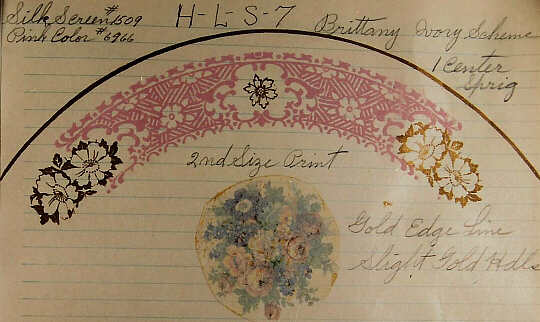 Silk Screen #1509
Pink Color #6966
H-L-S-7
Brittany Ivory Scheme
1 Center
Sprig
2nd Size Print
Gold Edge Line
Slight Gold Hdls